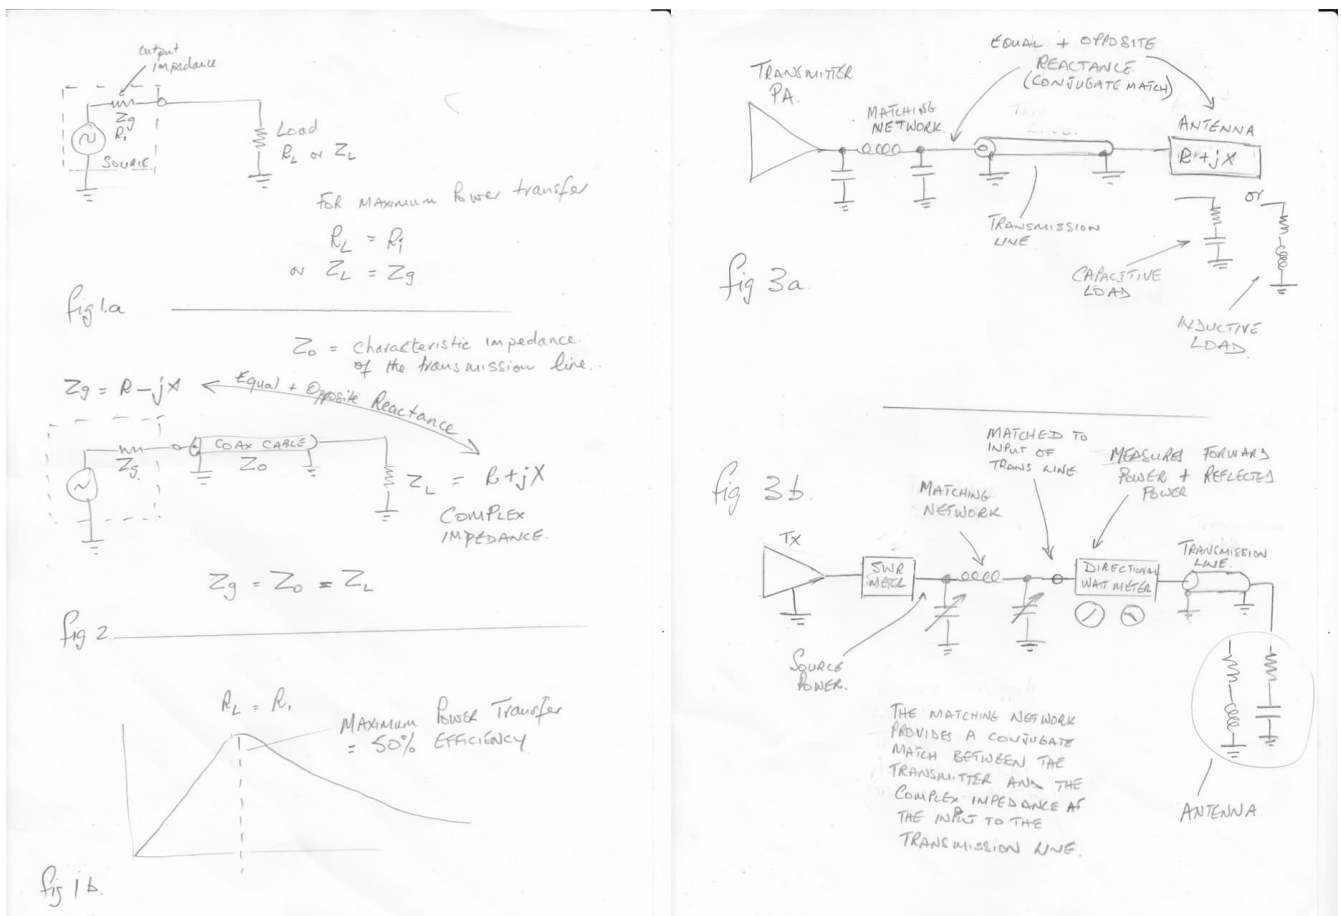 output
impedance
Zg
Ri
SOURCE
Load
RL or ZL
FOR MAXIMUM Power transfer
RL = Ri
or ZL = Zg
fig 1.a
Zo = characteristic impedance
of the transmission line.
Zg = R-jX
Equal + Opposite Reactance
Zg
COAX CABLE
Zo
ZL = R+jX
COMPLEX
IMPEDANCE.
Zg = Zo = ZL
fig 2
RL = Ri
MAXIMUM Power Transfer
= 50% EFFICIENCY
fig 1b.
EQUAL + OPPOSITE
REACTANCE
(CONJUGATE MATCH)
TRANSMITTER
PA.
MATCHING
NETWORK.
ANTENNA
R+jX
TRANSMISSION
LINE
or
CAPACITIVE
LOAD
INDUCTIVE
LOAD.
fig 3a.
fig 3b.
MATCHED TO
INPUT OF
TRANS LINE
MEASURES FORWARD
POWER + REFLECTED
POWER
MATCHING
NETWORK
TX
SWR
METER
DIRECTIONAL
WATTMETER
TRANSMISSION
LINE.
SOURCE
POWER.
THE MATCHING NETWORK
PROVIDES A CONJUGATE
MATCH BETWEEN THE
TRANSMITTER AND THE
COMPLEX IMPEDANCE AT
THE INPUT TO THE
TRANSMISSION LINE.
ANTENNA